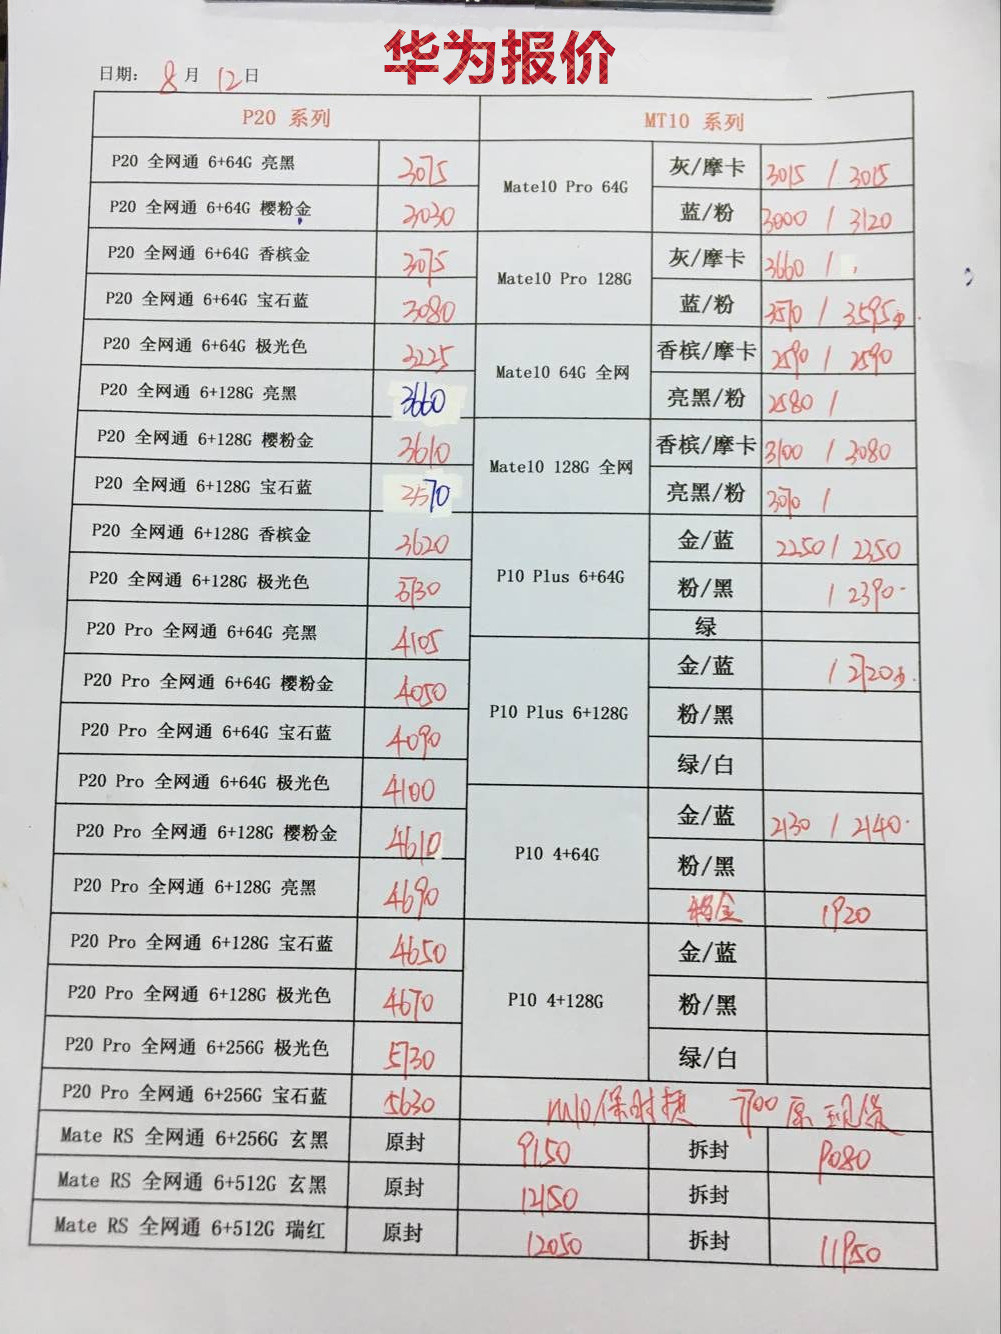 华为报价
日期: 8月12日
P20 系列 MT10 系列
P20 全网通 6+64G 亮黑 3075
P20 全网通 6+64G 樱粉金 3030
P20 全网通 6+64G 香槟金 3075
P20 全网通 6+64G 宝石蓝 3080
P20 全网通 6+64G 极光色 3225
P20 全网通 6+128G 亮黑 3660
P20 全网通 6+128G 樱粉金 3610
P20 全网通 6+128G 宝石蓝
P20 全网通 6+128G 香槟金 3620
P20 全网通 6+128G 极光色
P20 Pro 全网通 6+64G 亮黑 4105
P20 Pro 全网通 6+64G 樱粉金 4050
P20 Pro 全网通 6+64G 宝石蓝 4090
P20 Pro 全网通 6+64G 极光色 4100
P20 Pro 全网通 6+128G 樱粉金 4610
P20 Pro 全网通 6+128G 亮黑 4690
P20 Pro 全网通 6+128G 宝石蓝 4650
P20 Pro 全网通 6+128G 极光色 4670
P20 Pro 全网通 6+256G 极光色 5730
P20 Pro 全网通 6+256G 宝石蓝 5630
Mate10 Pro 64G 灰/摩卡 3015 / 3015
蓝/粉 3000 / 3120
Mate10 Pro 128G 灰/摩卡 3660 /
蓝/粉 3570 / 3595
Mate10 64G 全网 香槟/摩卡 2590 / 2590
亮黑/粉 2580 /
Mate10 128G 全网 香槟/摩卡 3100 / 3080
亮黑/粉 3070 /
P10 Plus 6+64G 金/蓝 2250 / 2350
粉/黑 / 2390
绿
P10 Plus 6+128G 金/蓝 / 2720
粉/黑
绿/白
P10 4+64G 金/蓝 2130 / 2140
粉/黑
金 1920
P10 4+128G 金/蓝
粉/黑
绿/白
M10保时捷 7700 原 现货
Mate RS 全网通 6+256G 玄黑 原封 9150 拆封 9080
Mate RS 全网通 6+512G 玄黑 原封 12150 拆封
Mate RS 全网通 6+512G 瑞红 原封 12050 拆封 11950